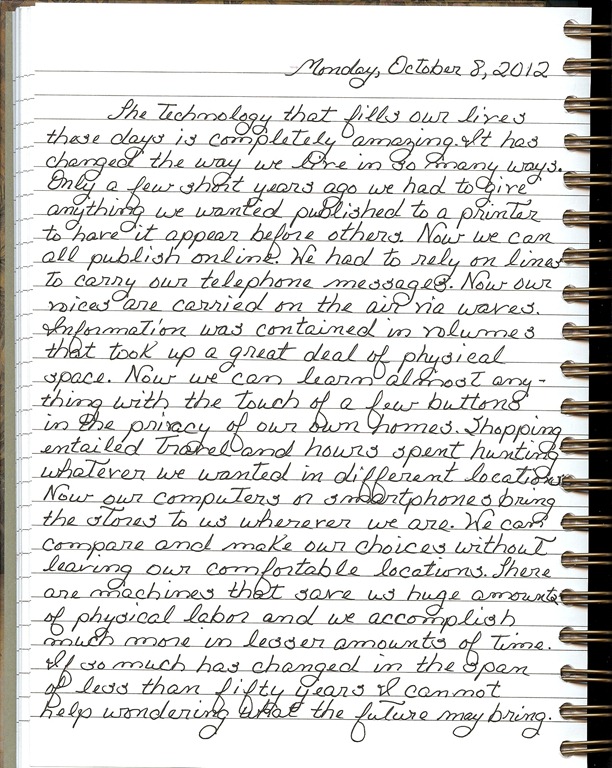 Monday, October 8, 2012
The Technology that fills our lives
these days is completely amazing. It has
changed the way we live in so many ways.
Only a few short years ago we had to give
anything we wanted published to a printer
to have it appear before others. Now we can
all publish online. We had to rely on lines
to carry our telephone messages. Now our
voices are carried on the air via waves.
Information was contained in volumes
that took up a great deal of physical
space. Now we can learn almost any-
thing with the touch of a few buttons
in the privacy of our own homes. Shopping
entailed travel and hours spent hunting
whatever we wanted in different locations.
Now our computers or smartphones bring
the stores to us wherever we are. We can
compare and make our choices without
leaving our comfortable locations. There
are machines that save us huge amounts
of physical labor and we accomplish
much more in lesser amounts of time.
If so much has changed in the span
of less than fifty years I cannot
help wondering what the future may bring.